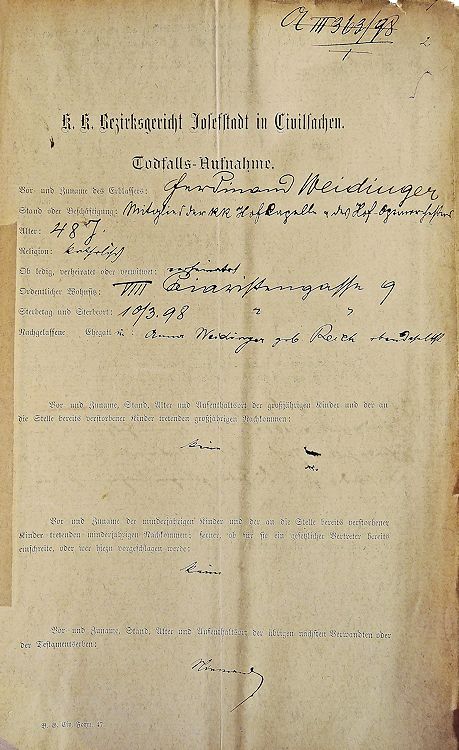 A III 363/98
1
2
K. K. Bezirksgericht Josefstadt in Civilsachen.
Todfalls-Aufnahme.
Vor- und Zuname des Erblassers: Ferdinand Weidinger
Stand oder Beschäftigung: Mitglied der kk Hofcapelle u. des Hof-Opernorchesters
Alter: 48 J.
Religion: katholisch
Ob ledig, verheiratet oder verwitwet: verheiratet
Ordentlicher Wohnsitz: VIII Piaristengasse 9
Sterbetag und Sterbeort: 10/3. 98 " "
Nachgelassene Ehegattin: Anna Weidinger geb Reich ebendaselbst
Vor- und Zuname, Stand, Alter und Aufenthaltsort der großjährigen Kinder und der an
die Stelle bereits verstorbener Kinder tretenden großjährigen Nachkommen:
keine
Vor- und Zuname der minderjährigen Kinder und der an die Stelle bereits verstorbener
Kinder tretenden minderjährigen Nachkommen; ferner, ob für sie ein gesetzlicher Vertreter bereits
einschreite, oder wer hiezu vorgeschlagen werde:
keine
Vor- und Zuname, Stand, Alter und Aufenthaltsort der übrigen nächsten Verwandten oder
der Testamentserben:
Niemand